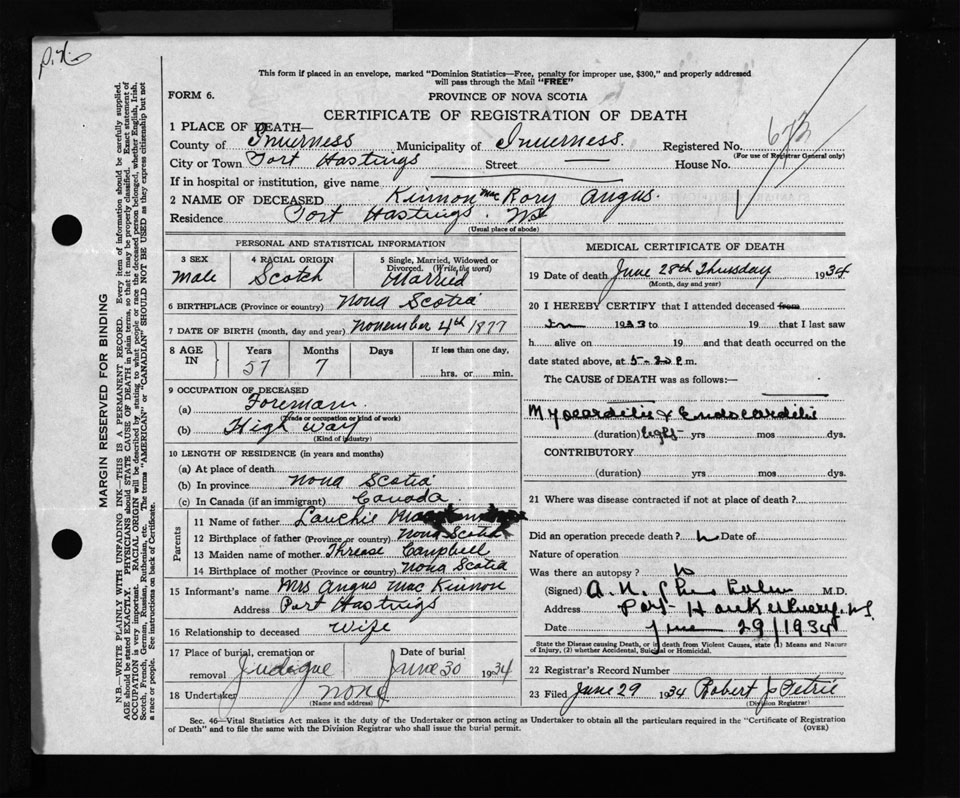 This form if placed in an envelope, marked "Dominion Statistics—Free, penalty for improper use, $300," and properly addressed
will pass through the Mail "FREE"
FORM 6.
PROVINCE OF NOVA SCOTIA
CERTIFICATE OF REGISTRATION OF DEATH
1 PLACE OF DEATH—
County of Inverness Municipality of Inverness. Registered No. 673
(For use of Registrar General only)
City or Town Port Hastings Street — House No.
If in hospital or institution, give name
2 NAME OF DECEASED Kinnon Mac Rory Angus.
Residence Port Hastings. NS
(Usual place of abode)
PERSONAL AND STATISTICAL INFORMATION
3 SEX
Male
4 RACIAL ORIGIN
Scotch
5 Single, Married, Widowed or
Divorced. (Write the word)
Married
6 BIRTHPLACE (Province or country) Nova Scotia
7 DATE OF BIRTH (month, day and year) November 4th 1877
8 AGE
IN
Years Months Days If less than one day,
57 7 hrs. or min.
9 OCCUPATION OF DECEASED
(a) Foreman
(Trade or occupation or kind of work)
(b) High Way
(Kind of industry)
10 LENGTH OF RESIDENCE (in years and months)
(a) At place of death
(b) In province Nova Scotia
(c) In Canada (if an immigrant) Canada.
Parents
11 Name of father Lauchie
12 Birthplace of father (Province or country) Nova Scotia
13 Maiden name of mother Threase Campbell
14 Birthplace of mother (Province or country) Nova Scotia
15 Informant's name Mrs Angus Mac Kinnon
Address Port Hastings
16 Relationship to deceased Wife
17 Place of burial, cremation or Date of burial
removal Judique June 30 1934
18 Undertaker none
(Name and address)
MEDICAL CERTIFICATE OF DEATH
19 Date of death June 28th Thursday 1934
(Month, day and year)
20 I HEREBY CERTIFY that I attended deceased from
1933 to 19 that I last saw
h alive on 19 and that death occurred on the
date stated above, at 5-20 P. m.
The CAUSE of DEATH was as follows:—
Myocarditis & Endocarditis
(duration) Eight yrs mos dys.
CONTRIBUTORY
(duration) yrs mos dys.
21 Where was disease contracted if not at place of death?
Did an operation precede death? Date of
Nature of operation
Was there an autopsy? No
(Signed) A. M.D.
Address Port Hawkesbury. NS
Date June 29/1934
State the Disease causing Death, or in death from Violent Causes, state (1) Means and Nature
of Injury, (2) whether Accidental, Suicidal or Homicidal.
22 Registrar's Record Number
23 Filed June 29 1934 Robert J Petrie
(Division Registrar)
Sec. 46—Vital Statistics Act makes it the duty of the Undertaker or person acting as Undertaker to obtain all the particulars required in the "Certificate of Registration
of Death" and to file the same with the Division Registrar who shall issue the burial permit. (OVER)
MARGIN RESERVED FOR BINDING
N.B.—WRITE PLAINLY WITH UNFADING INK—THIS IS A PERMANENT RECORD. Every item of information should be carefully supplied.
AGE should be stated EXACTLY. PHYSICIANS should STATE CAUSE OF DEATH in plain terms, so that it may be properly classified. Exact statement of
OCCUPATION is very important. RACIAL ORIGIN will be described by stating to what people or race the deceased person belonged, whether English, Irish,
Scotch, French, German, Russian, Ruthenian, etc. The terms "AMERICAN" or "CANADIAN" SHOULD NOT BE USED as they express citizenship but not
a race or people. See instructions on back of Certificate.